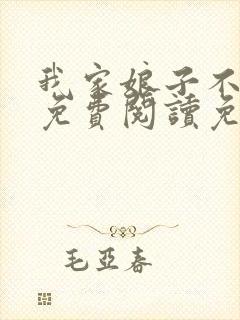 我家娘子不
免費閱讀免
毛亞春